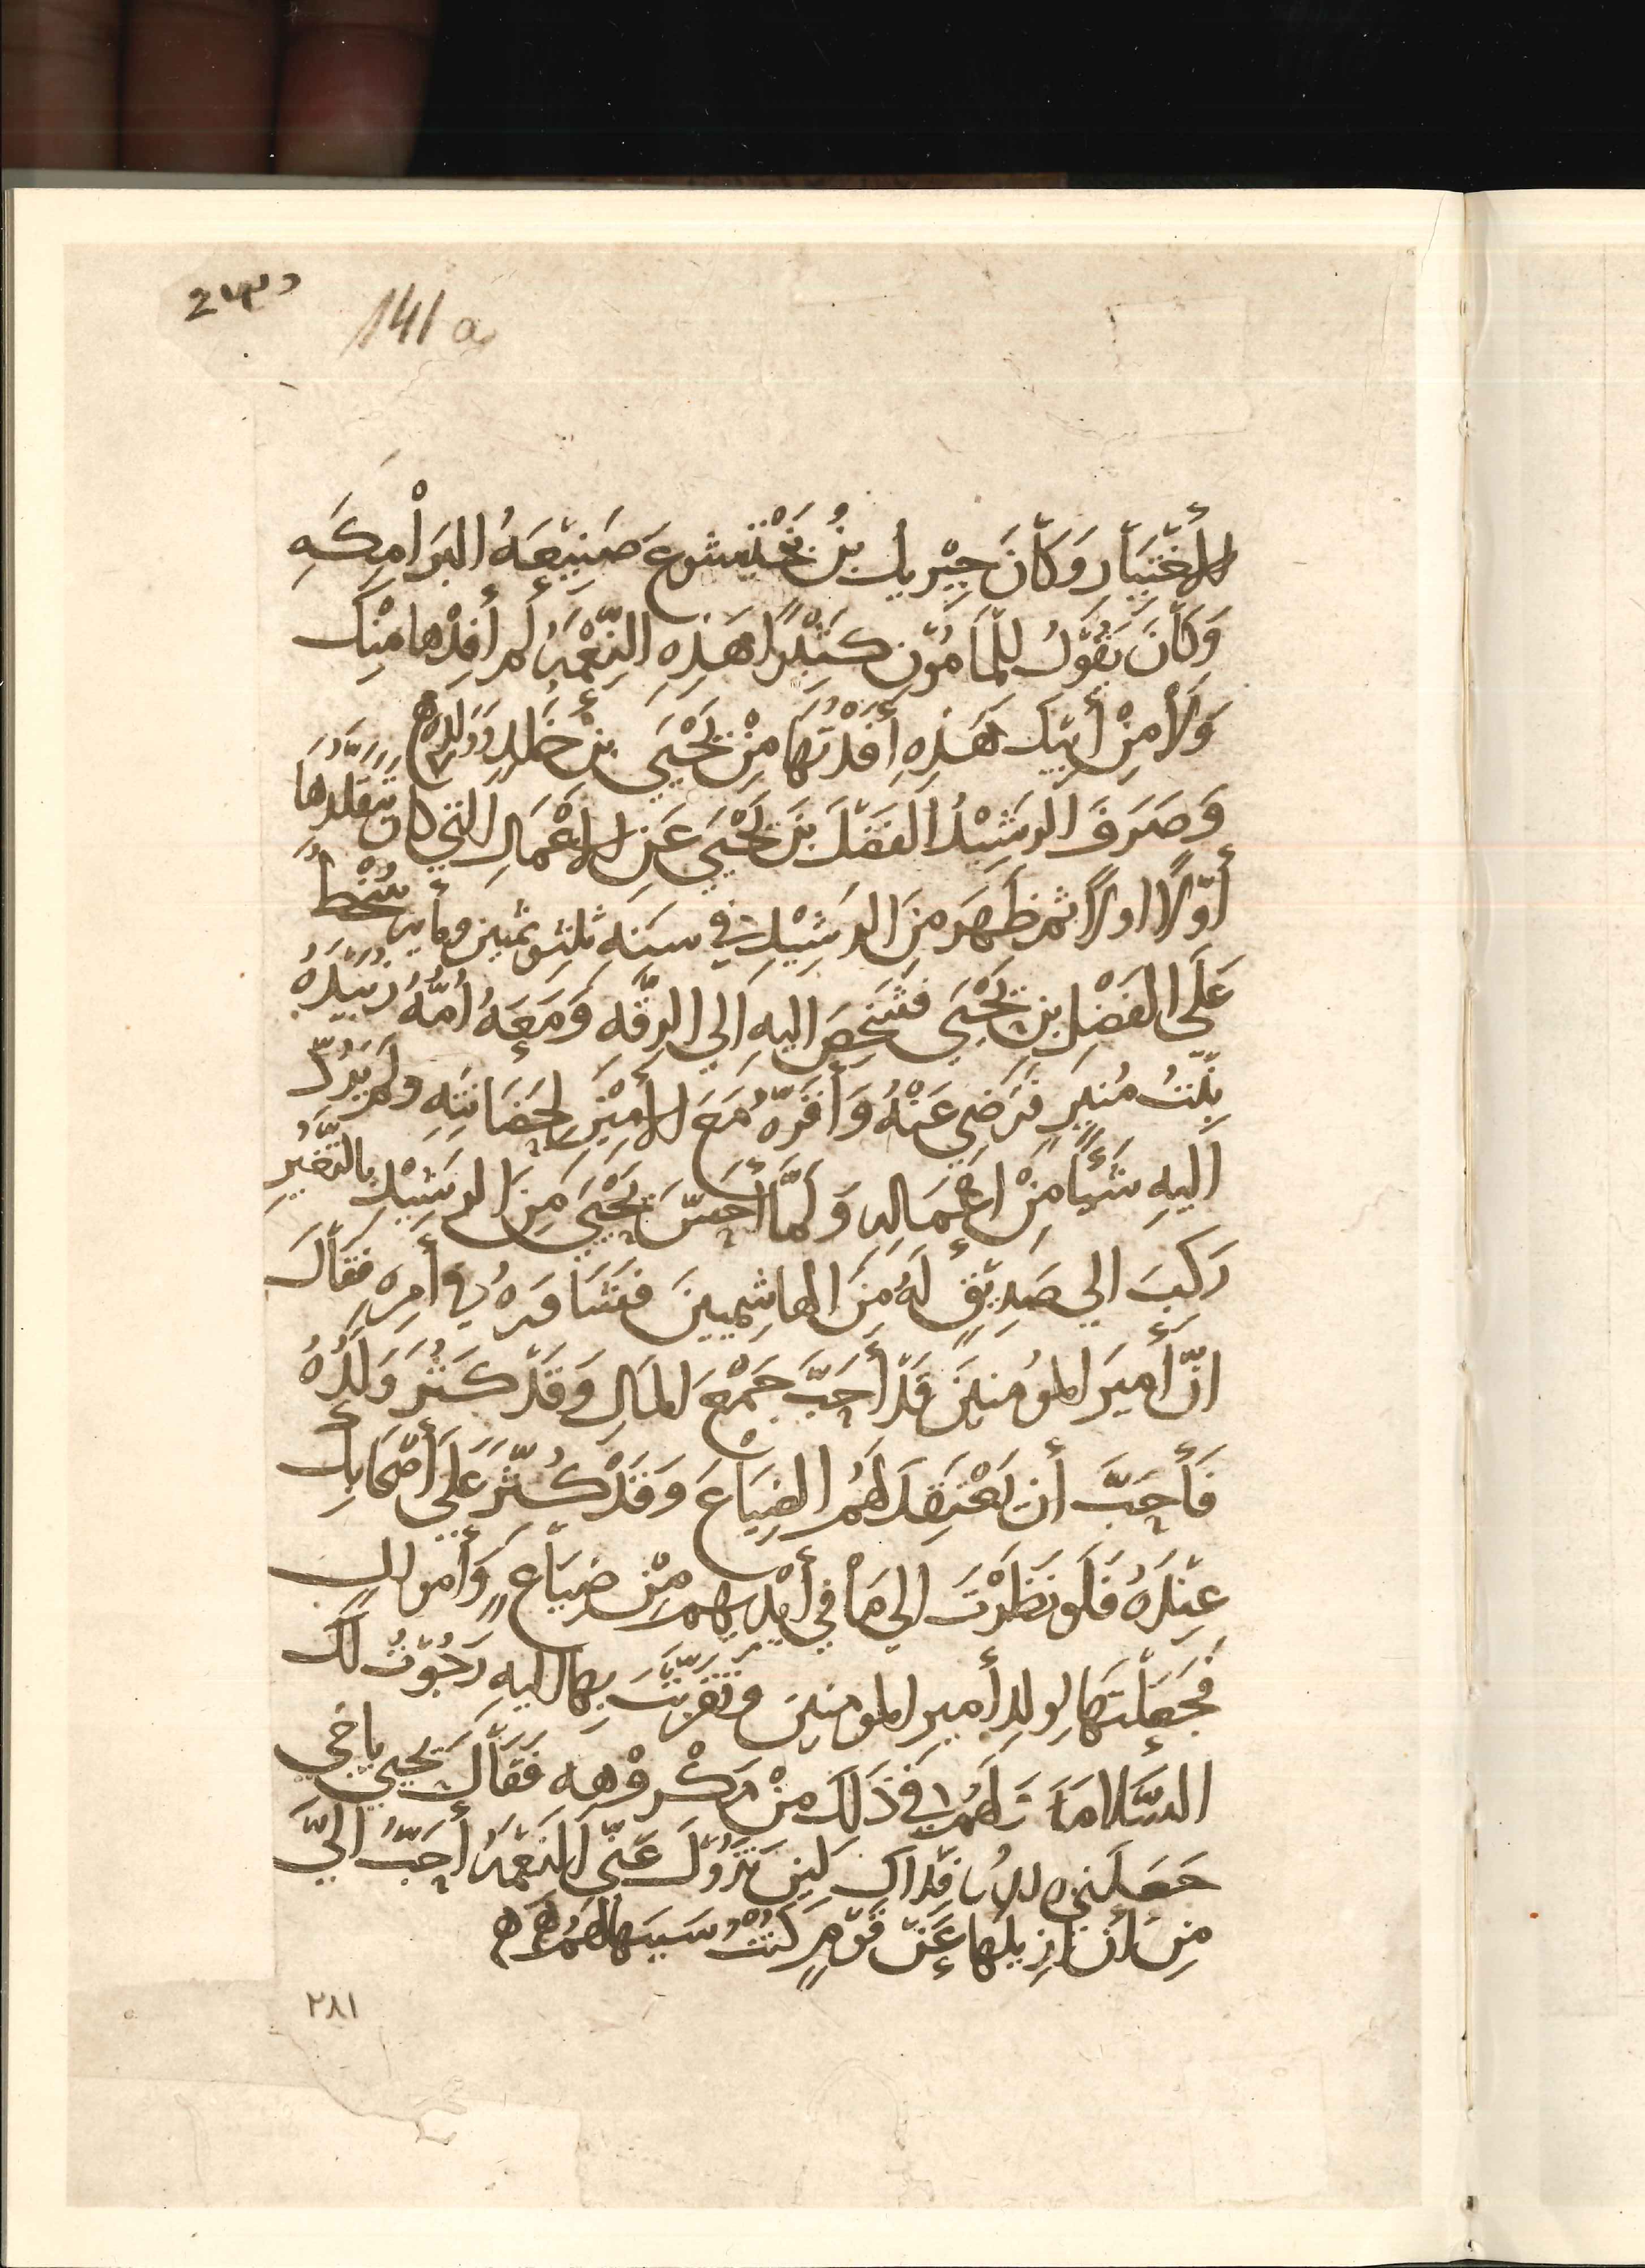 141a
الأَغْنِيَاء وَكَانَ جِبْرِيل بنُ بَخْتيشوعَ صَنِيْعَهُ البَرَامِكَهِ
وَكَانَ يَقُولُ لِلمَامُونِ كثِيْرًا هَذِهِ النِّعْمَهُ لم أفِدْها مِنْكَ
وَلَا مِنْ أَبيْكَ هَذِهِ أَفَدْتُهَا مِنْ يَحْيَى بنِ خَالدٍ وَوَلَدِهِ ه
وَصَرَفَ الرَشِيْدُ الفَضْلَ بنَ يَحْيَى عَنِ الاعْمَالِ التي كان يَتَقلَّدُهَا
أَوّلاً اولاً ثم ظَهَرَ مِنَ الرشِيْدِ في سَنَهِ ثلثٍ وثمنين ومأيه سُخْطٌ
عَلَى الفَضْلِ بنِ يَحْيَى فَشَخَصَ اليهِ الي الرقَّه وَمَعَهُ أُمُّهُ زُبَيْدَهُ
بنْتُ مُنيرٍ فَرَضِي عَنْهُ وَأَقَرَّهُ مَعَ الأَمِيْنِ لحَضَانَتِهِ ولم يَرُدّ
اليهِ شَيْأً مِنْ اعْمَالِهِ وَلَمَّا أَحَسَّ يَحْيَى مِنَ الرشِيْدِ بالتغَيُّرِ
رَكبَ الي صَدِيْقٍ لَهُ مِنَ الهاشِميينَ فشَاوَرهُ في أَمرِهِ فقَالَ
انّ أَميرَ المومنينَ قَدْ أَحَبَّ جَمْعَ المَالِ وَقَدْ كثُرَ وَلَدُهُ
فَأَحَبَّ أن يَعْتقدَ لهُمُ الضِيَاعَ وَقَدْ كُثِّرَ عَلَى أَصْحَابِكَ
عِنْدَهُ فلَو نَظَرْتَ الى مَا في أَيْدِيهم مِنْ ضِيَاعٍ وَأَموالٍ
فجَعَلْتَهَا لوَلدِ أَميرِ المومنينَ وتَقرَّبْتَ بِهَا اليهِ رَجَوْتُ لكَ
السَّلامَهَ وَلهُم في ذَلكَ مِنْ مَكْرُوْهِهِ فَقَالَ يحيى ياخي
جَعَلَني اللهُ فِدَاكَ لَئِن تَزُوْلَ عَنّي النَعْمَهُ أَحَبُّ اليَّ
مِنْ أن ازِيلَها عَنْ قَوْمٍ كنْتُ سَببَهَا لهُمْ ه ه
٢٨١